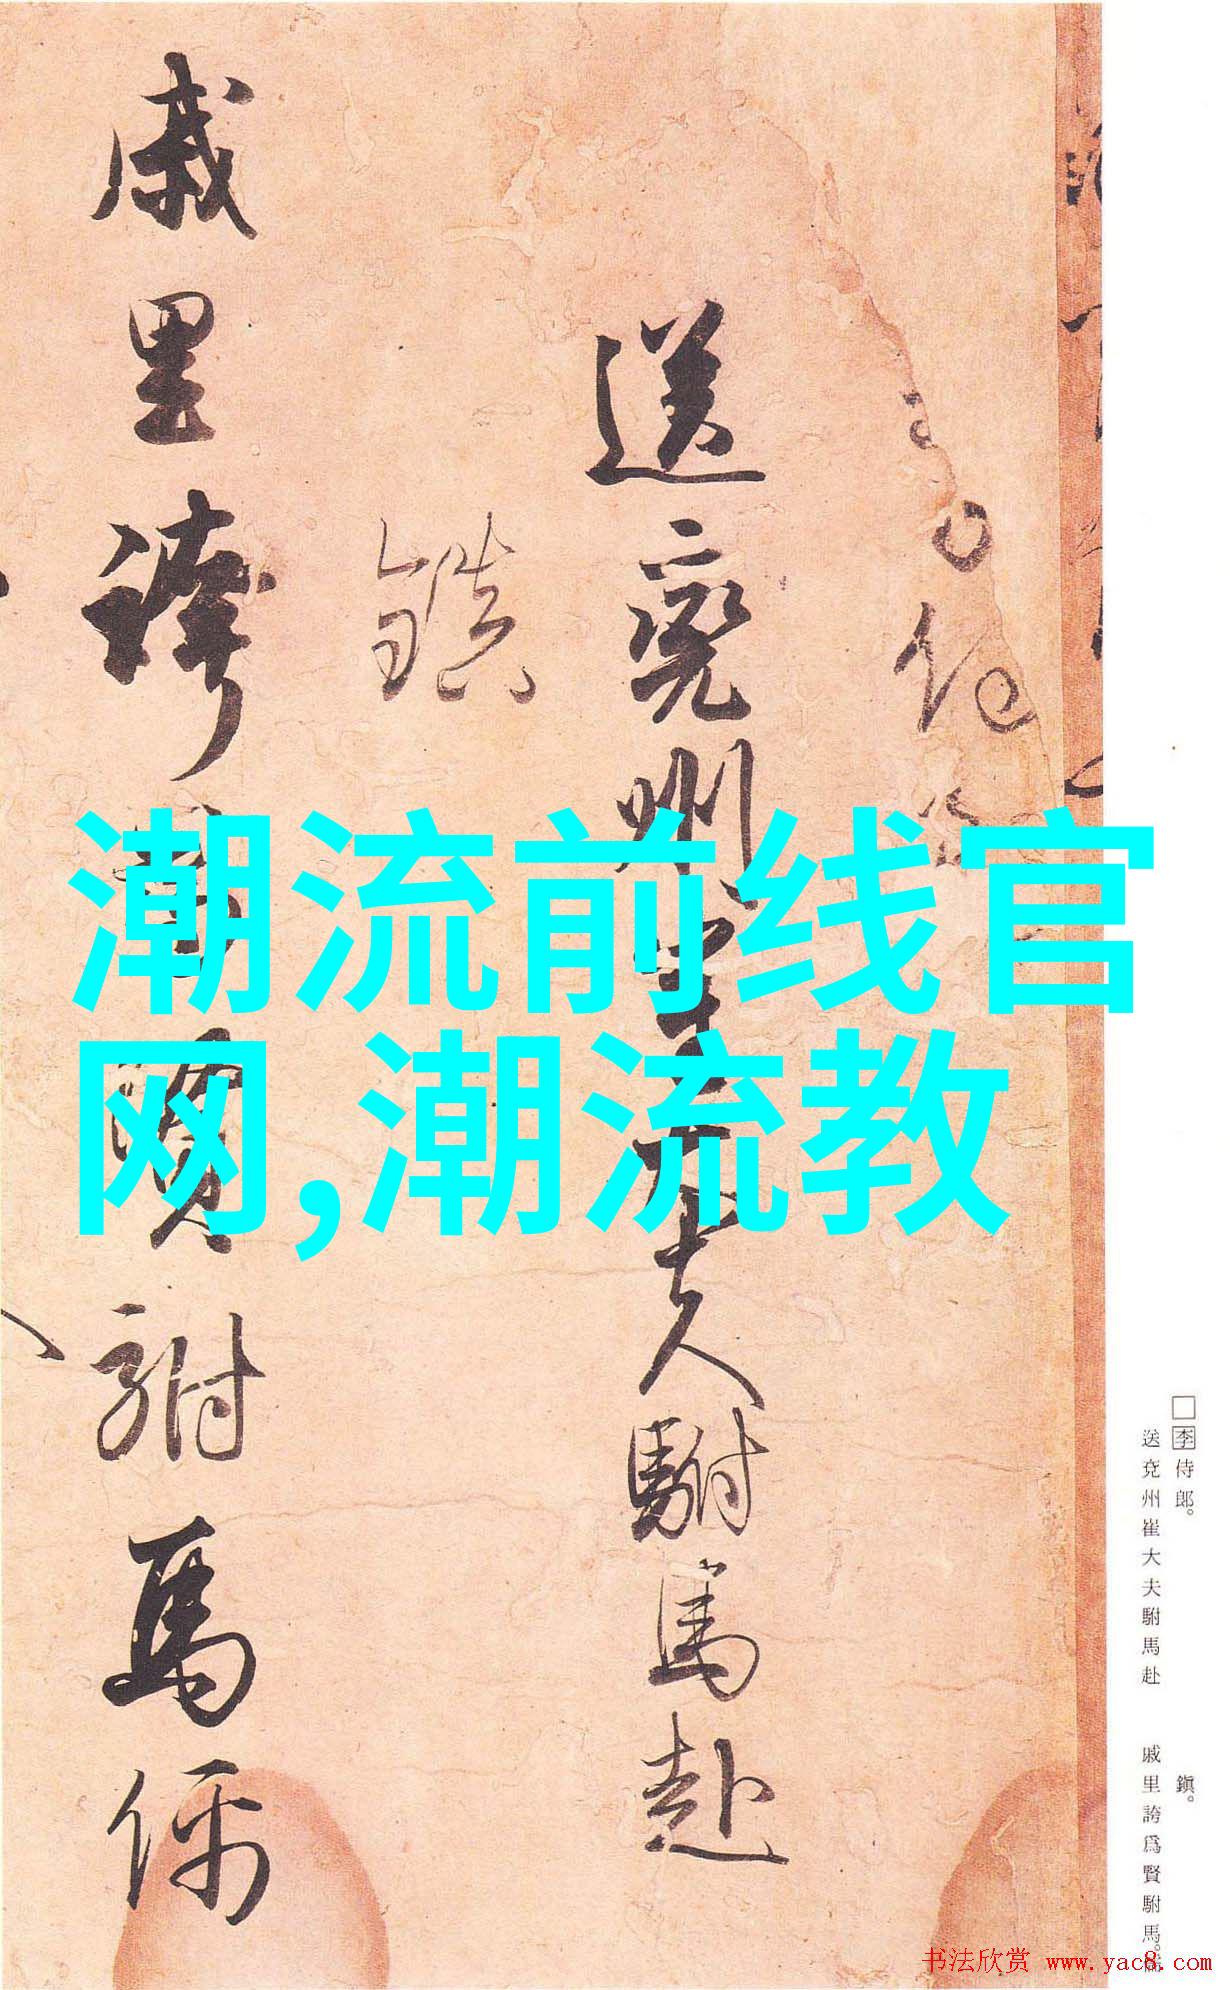 潮流前线官
网,潮流教
送兗州崔大夫駙馬赴
鎮
戚里誇為賢駙馬儒
□李侍郎。
鎮。
送兗州崔大夫駙馬赴
戚里誇爲賢駙馬。
书法欣赏 www.yac8.com